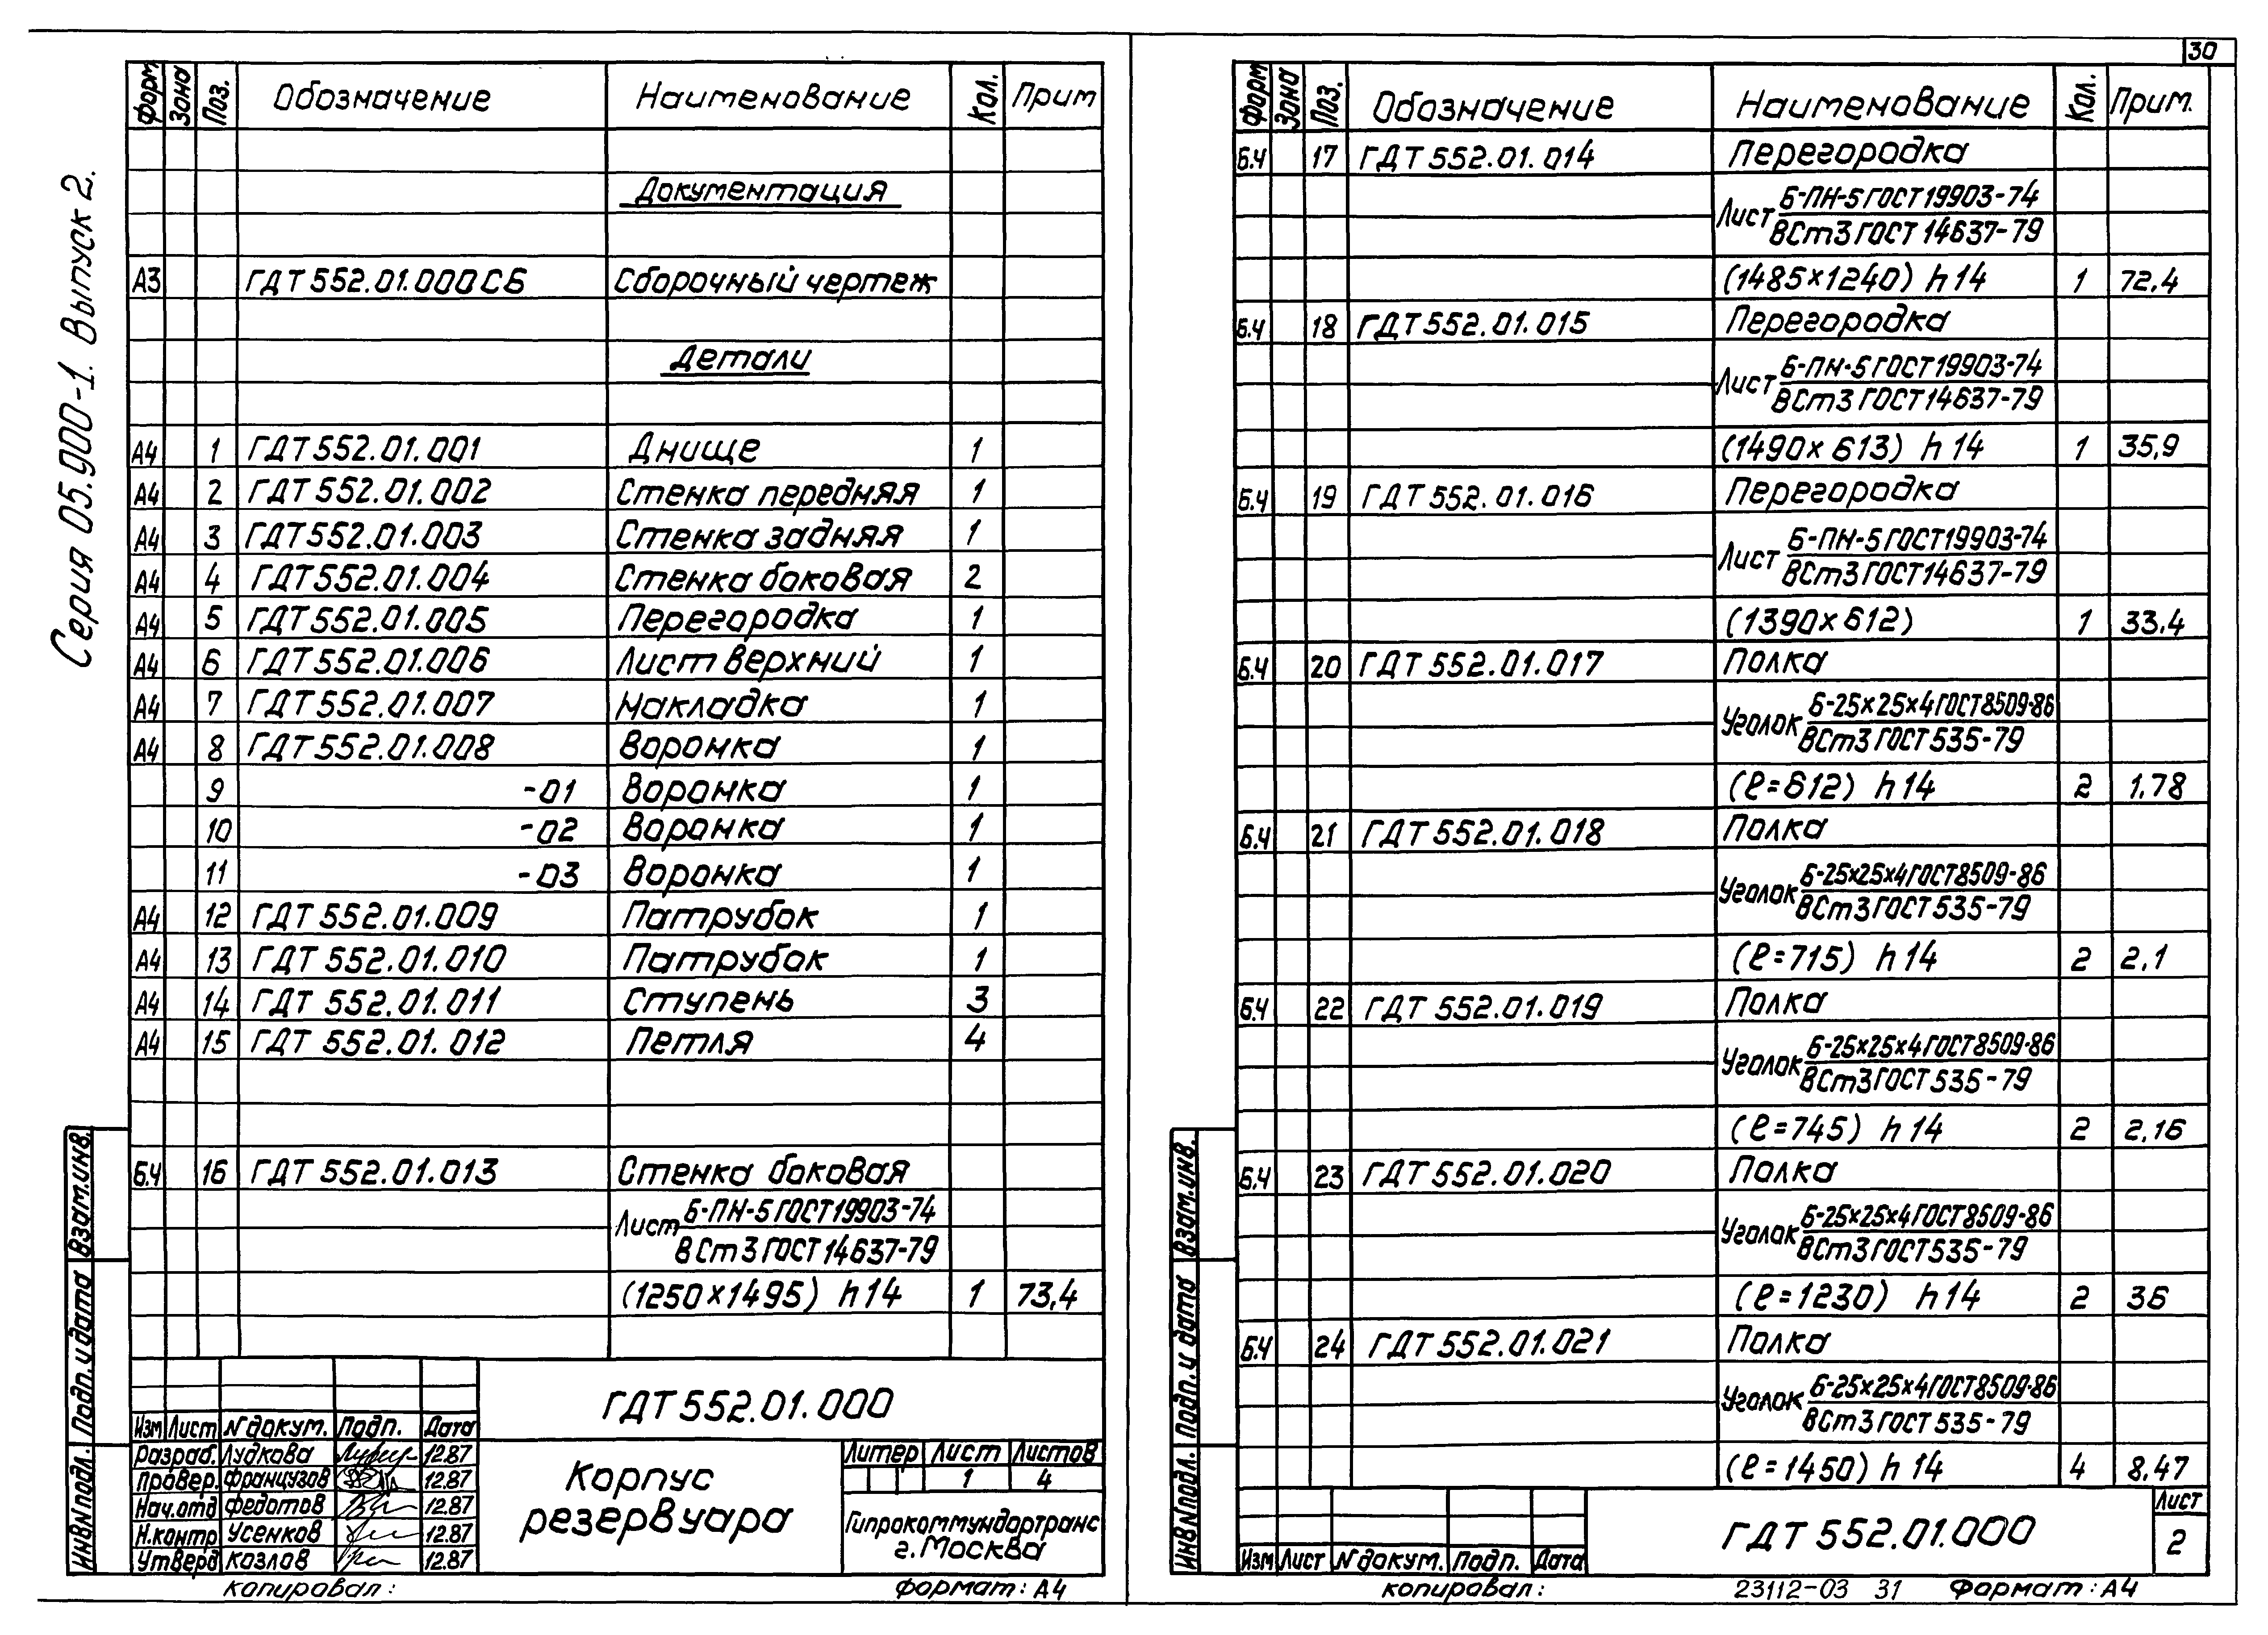 30
Серия 05.900-1. Выпуск 2.
Форм Зона Поз. Обозначение Наименование Кол. Прим
Документация
А3 ГДТ 552.01.000СБ Сборочный чертеж
Детали
А4 1 ГДТ 552.01.001 Днище 1
А4 2 ГДТ 552.01.002 Стенка передняя 1
А4 3 ГДТ 552.01.003 Стенка задняя 1
А4 4 ГДТ 552.01.004 Стенка боковая 2
А4 5 ГДТ 552.01.005 Перегородка 1
А4 6 ГДТ 552.01.006 Лист верхний 1
А4 7 ГДТ 552.01.007 Накладка 1
А4 8 ГДТ 552.01.008 Воронка 1
9 -01 Воронка 1
10 -02 Воронка 1
11 -03 Воронка 1
А4 12 ГДТ 552.01.009 Патрубок 1
А4 13 ГДТ 552.01.010 Патрубок 1
А4 14 ГДТ 552.01.011 Ступень 3
А4 15 ГДТ 552.01.012 Петля 4
Б.Ч 16 ГДТ 552.01.013 Стенка боковая
Лист Б-ПН-5 ГОСТ 19903-74
ВСт3 ГОСТ 14637-79
(1250×1495) h14 1 73,4
ГДТ 552.01.000
Изм Лист N докум. Подп. Дата
Разраб. Лудкова 12.87
Провер. Французов 12.87
Нач.отд Федотов 12.87
Н.контр Усенков 12.87
Утверд Козлов 12.87
Корпус
резервуара
Литер Лист Листов
1 4
Гипрокоммундортранс
г. Москва
Взам.инв.
Подп. и дата
Инв N подл.
копировал:
формат: А4
Форм Зона Поз. Обозначение Наименование Кол. Прим.
Б.Ч 17 ГДТ 552.01.014 Перегородка
Лист Б-ПН-5 ГОСТ 19903-74
ВСт3 ГОСТ 14637-79
(1485×1240) h14 1 72,4
Б.Ч 18 ГДТ 552.01.015 Перегородка
Лист Б-ПН-5 ГОСТ 19903-74
ВСт3 ГОСТ 14637-79
(1490×613) h14 1 35,9
Б.Ч 19 ГДТ 552.01.016 Перегородка
Лист Б-ПН-5 ГОСТ 19903-74
ВСт3 ГОСТ 14637-79
(1390×612) 1 33,4
Б.Ч 20 ГДТ 552.01.017 Полка
Уголок Б-25×25×4 ГОСТ 8509-86
ВСт3 ГОСТ 535-79
(ℓ=612) h14 2 1,78
Б.Ч 21 ГДТ 552.01.018 Полка
Уголок Б-25×25×4 ГОСТ 8509-86
ВСт3 ГОСТ 535-79
(ℓ=715) h14 2 2,1
Б.Ч 22 ГДТ 552.01.019 Полка
Уголок Б-25×25×4 ГОСТ 8509-86
ВСт3 ГОСТ 535-79
(ℓ=745) h14 2 2,16
Б.Ч 23 ГДТ 552.01.020 Полка
Уголок Б-25×25×4 ГОСТ 8509-86
ВСт3 ГОСТ 535-79
(ℓ=1230) h14 2 36
Б.Ч 24 ГДТ 552.01.021 Полка
Уголок Б-25×25×4 ГОСТ 8509-86
ВСт3 ГОСТ 535-79
(ℓ=1450) h14 4 8,47
ГДТ 552.01.000
Лист
2
Изм Лист N докум. Подп. Дата
Взам.инв.
Подп. и дата
Инв N подл.
копировал:
23112-03 31 Формат: А4